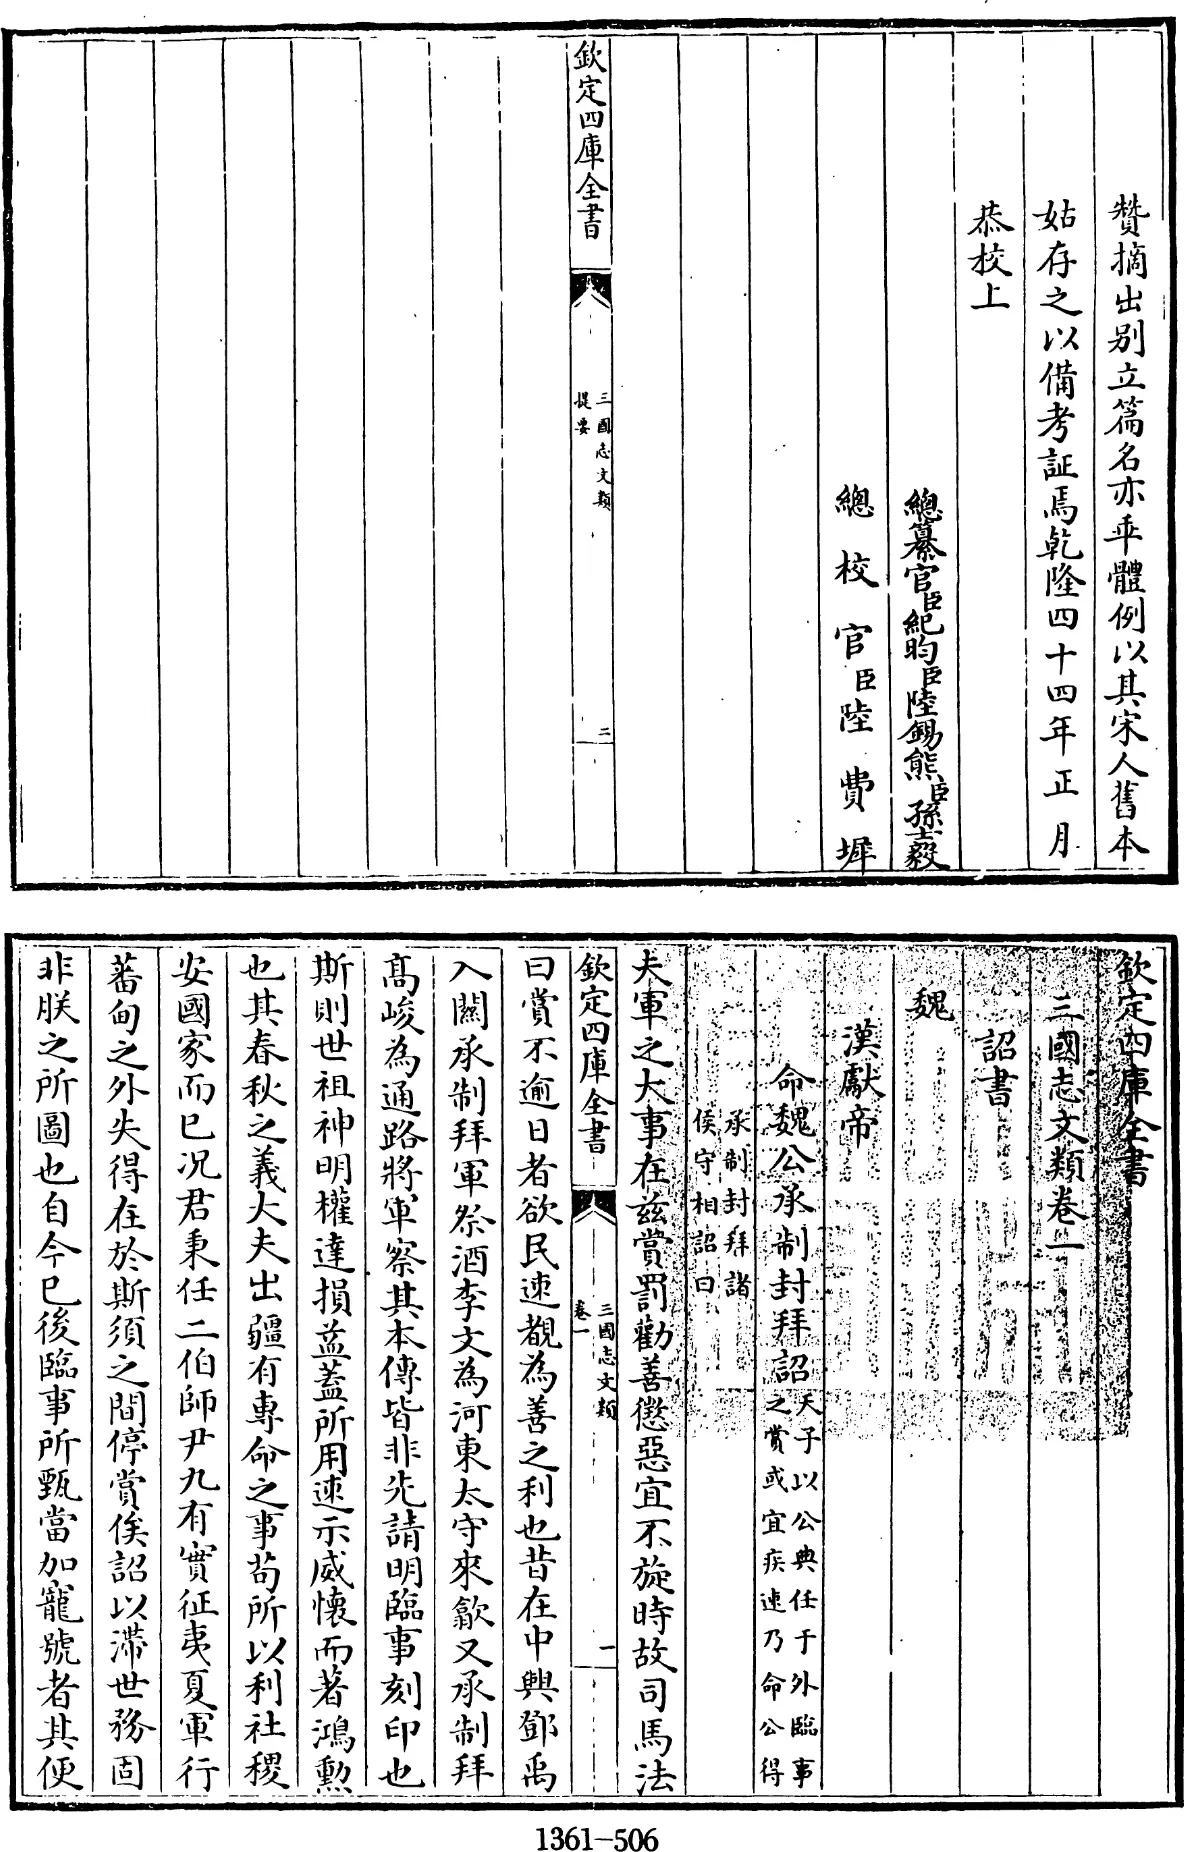 贊摘出別立篇名亦乖體例以其宋人舊本
姑存之以備考証焉乾隆四十四年正月
恭校上
總纂官臣紀昀臣陸錫熊臣孫士毅
總校官臣陸費墀
欽定四庫全書
三國志文類
提要
二
欽定四庫全書
三國志文類卷一
詔書
魏
漢獻帝
命魏公承制封拜詔
天子以公典任于外臨事
之賞或宜疾速乃命公得
承制封拜諸
侯守相詔曰
夫軍之大事在茲賞罰勸善懲惡宜不旋時故司馬法
欽定四庫全書
三國志文類
卷一
一
曰賞不逾日者欲民速覩為善之利也昔在中興鄧禹
入關承制拜軍祭酒李文為河東太守來歙又承制拜
高峻為通路將軍察其本傳皆非先請明臨事刻印也
斯則世祖神明權達損益蓋所用速示威懷而著鴻勲
也其春秋之義大夫出疆有專命之事茍所以利社稷
安國家而已況君秉任二伯師尹九有實征夷夏軍行
蕃甸之外失得在於斯須之間停賞俟詔以滯世務固
非朕之所圖也自今已後臨事所甄當加寵號者其便
1361-506